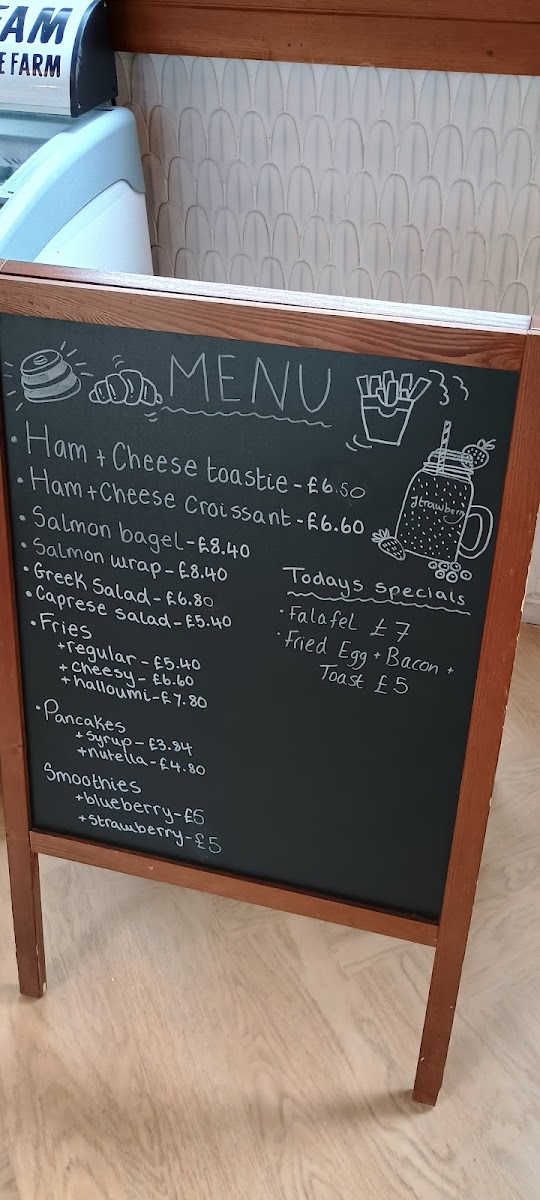 FAM
E FARM
MENU
• Ham + Cheese toastie - £6.50
• Ham + Cheese Croissant - £6.60
• Salmon bagel - £8.40
• Salmon wrap - £8.40
• Greek Salad - £6.80
• Caprese salad - £5.40
• Fries
+ regular - £5.40
+ cheesy - £6.60
+ halloumi - £7.80
• Pancakes
+ Syrup - £3.84
+ nutella - £4.80
Smoothies
+ blueberry - £5
+ strawberry - £5
Strawberry
Todays specials
• Falafel £7
• Fried Egg + Bacon +
Toast £5